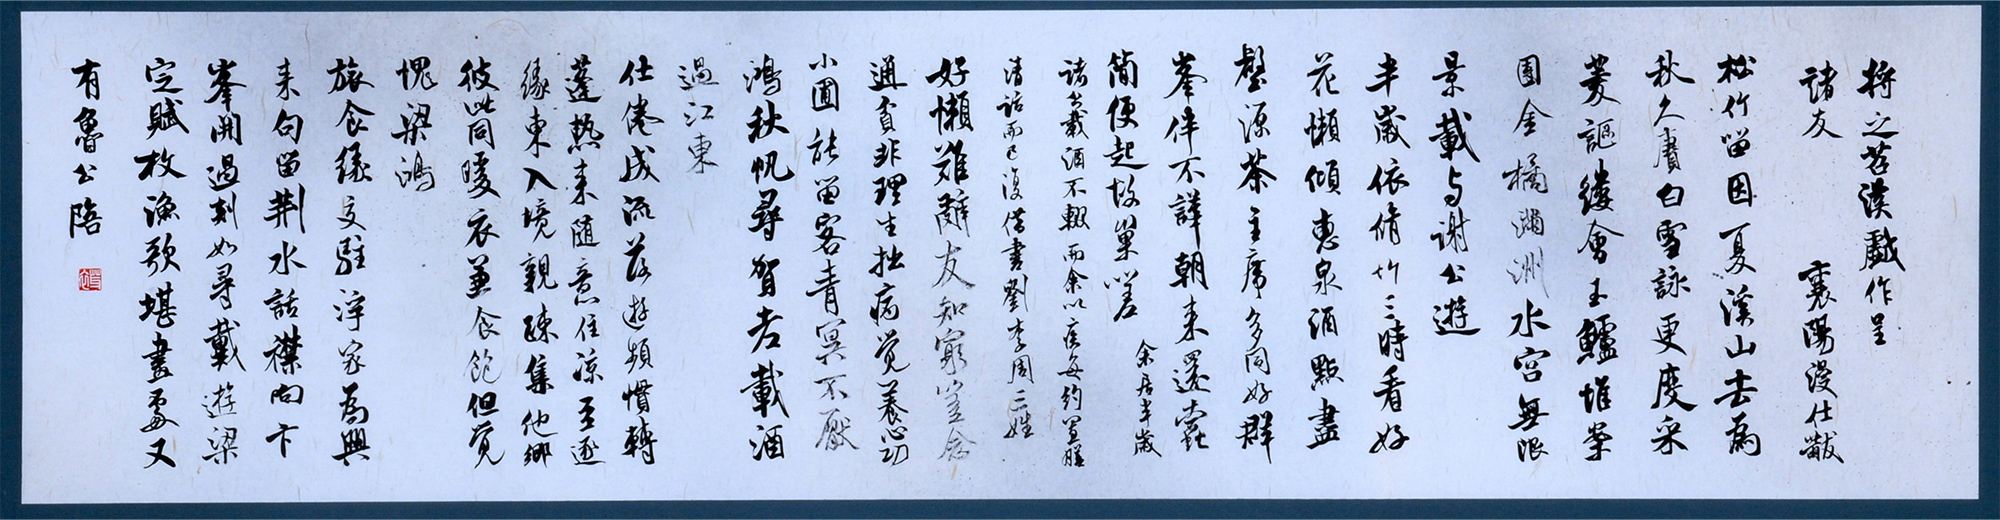 將之苕溪戲作呈
諸友 襄陽漫仕黻
松竹留因夏溪山去為
秋久賡白雪詠更度采
菱謳縷會玉鱸堆案
團金橘滿洲水宮無限
景載與謝公遊
半歲依脩竹三時看好
花懶傾惠泉酒點盡
壑源茶主席多同好群
峯伴不譁朝來還蠹
簡便起故巢嗟 余居半歲
諸公載酒不輟而余以疾每約置膳
清話而已復借書劉李周三姓
好懶難辭友知窮豈念
通貧非理生拙病覺養心功
小圃能留客青冥不厭
鴻秋帆尋賀老載酒
過江東
仕倦成流落遊頻慣轉
蓬熱來隨意住涼至逐
緣東入境親疎集他鄉
彼此同暖衣兼食飽但覺
愧梁鴻
旅食緣交駐浮家為興
來句留荊水話襟向卞
峯開過剡如尋戴遊梁
定賦枚漁歌堪畫處又
有魯公陪